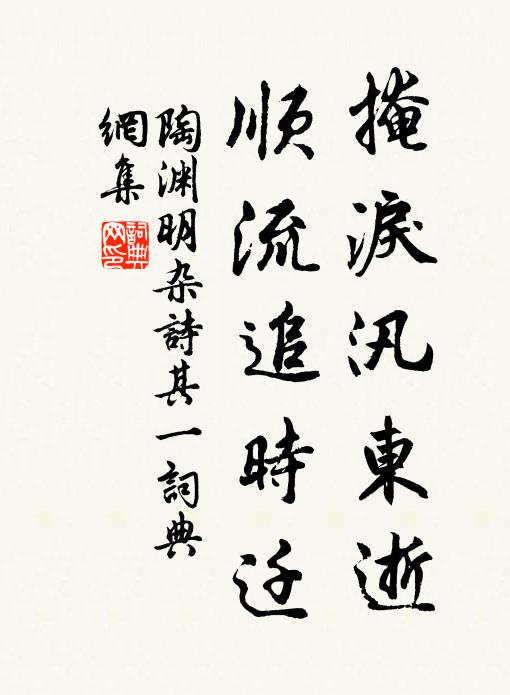 掩淚汎東逝
順流追時迁
陶渊明杂詩其一 詞典
網集
詞典网印